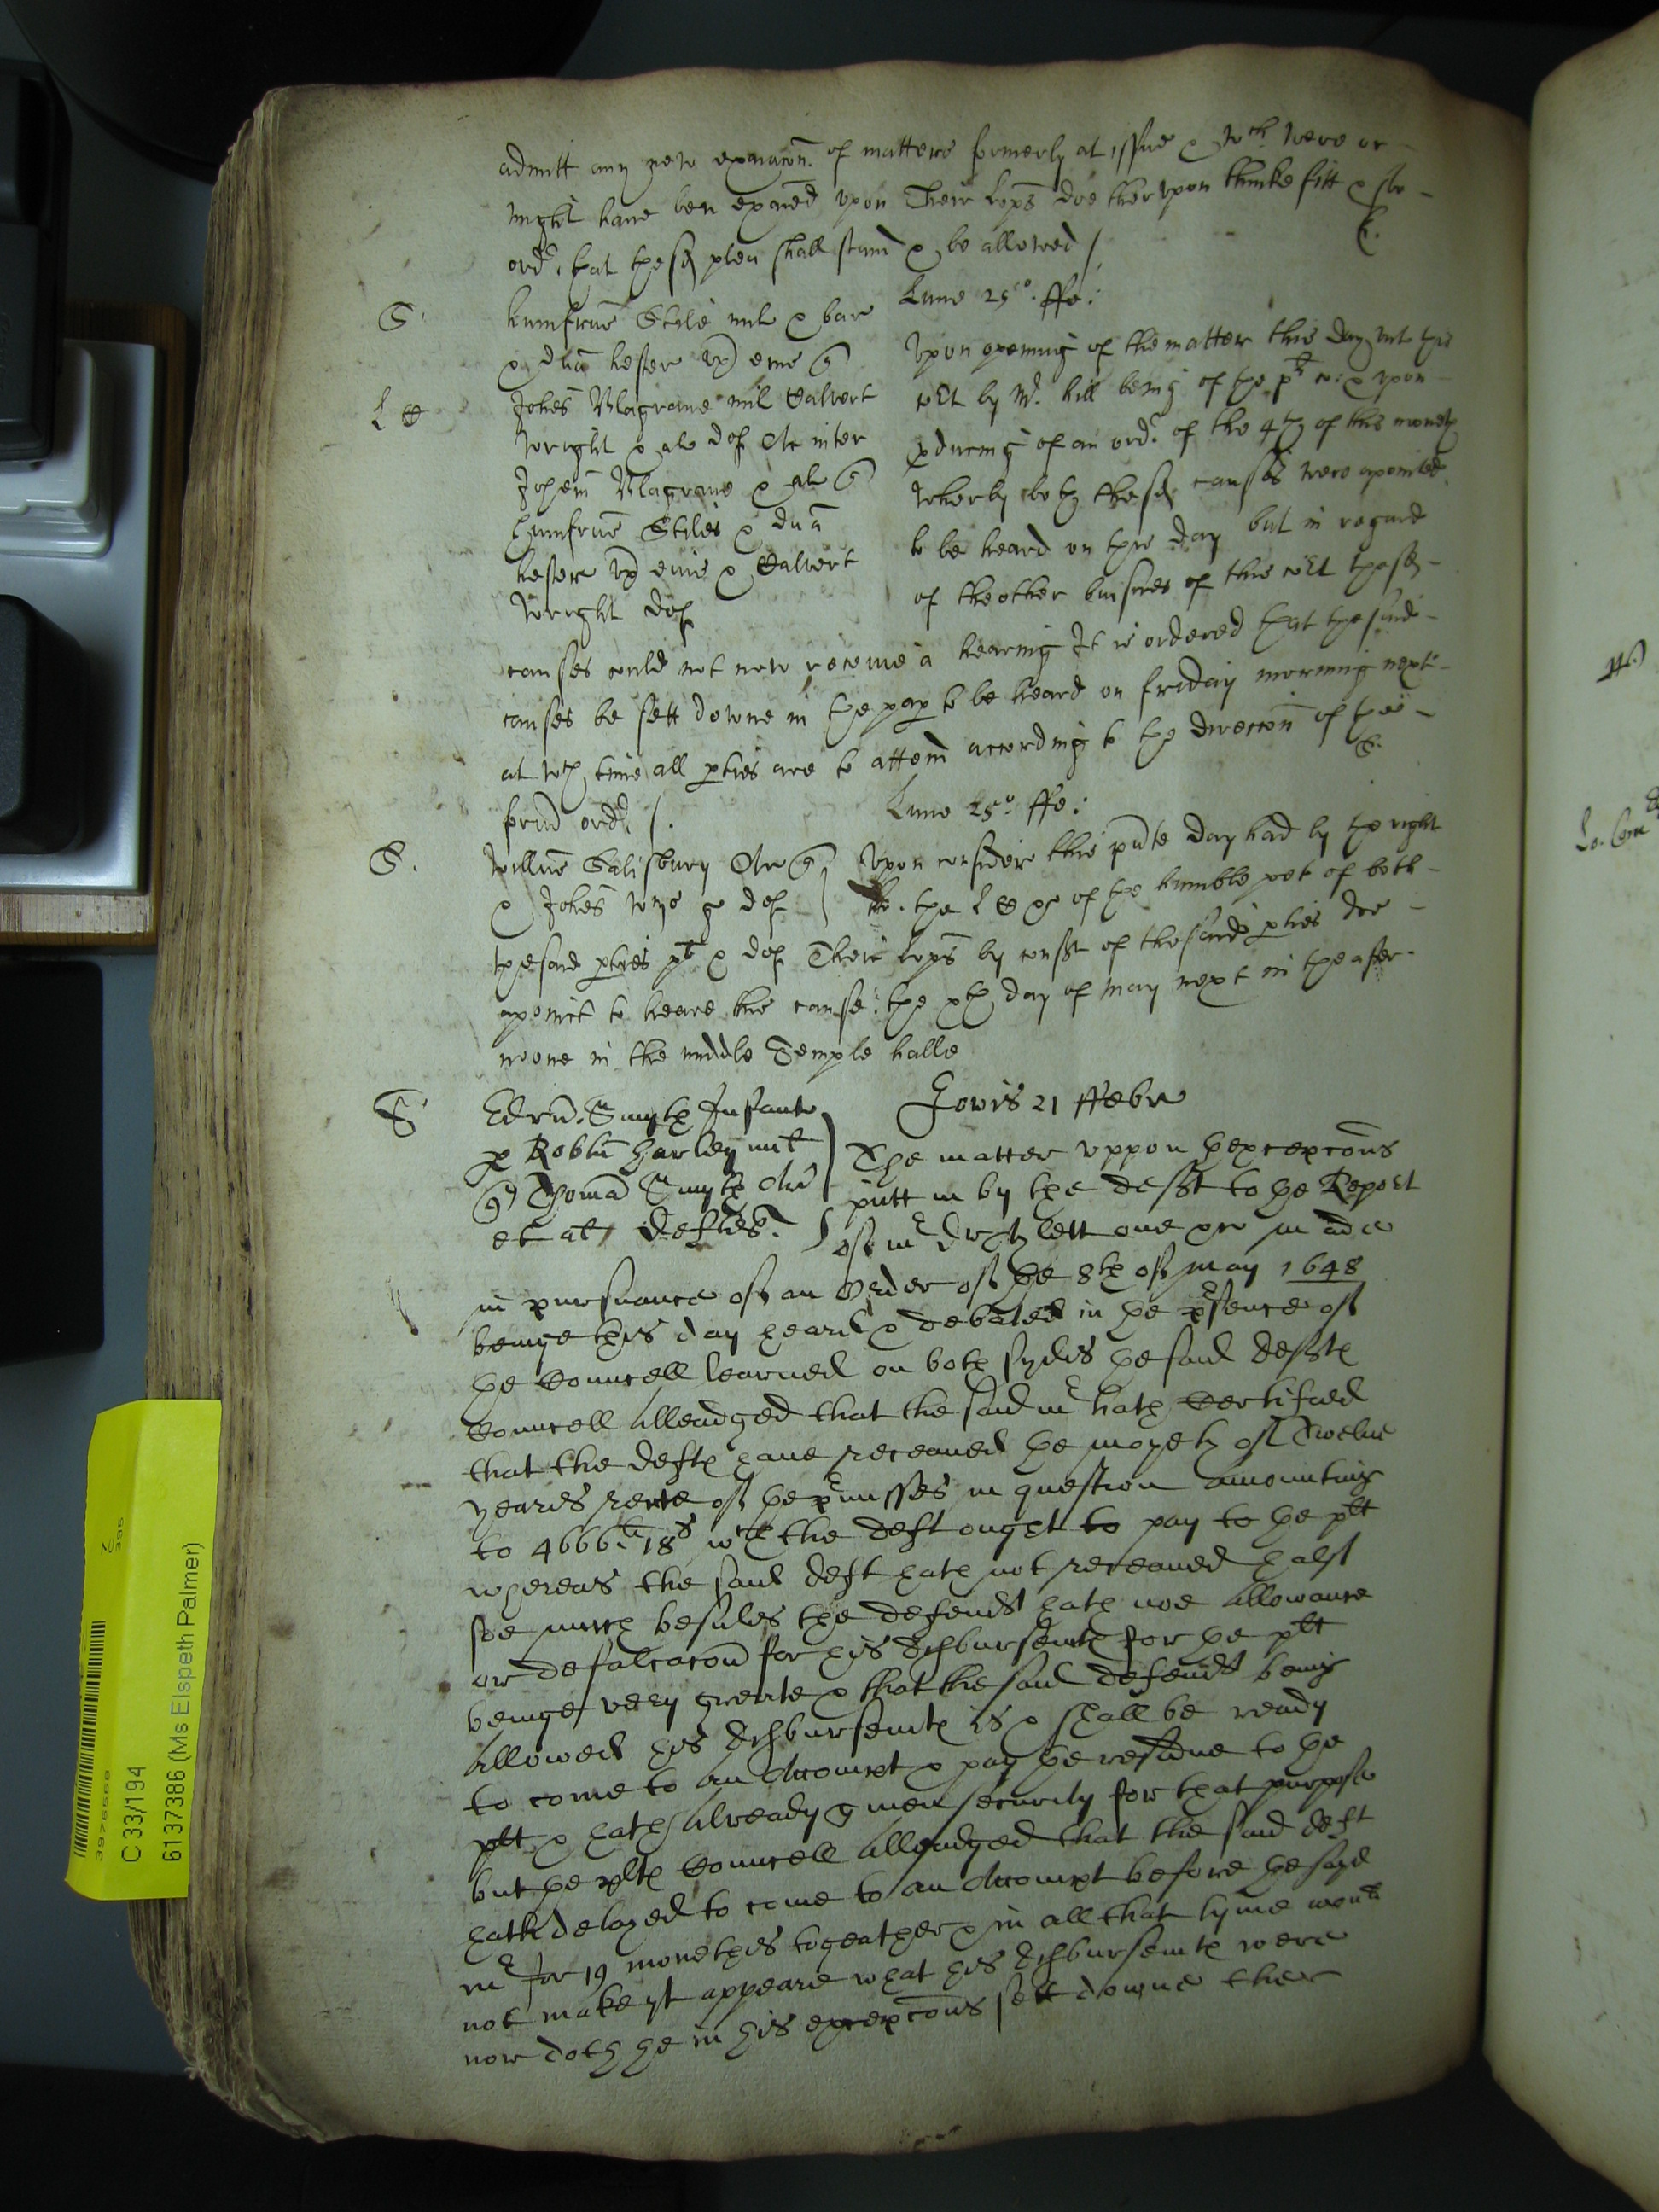 admitt any new exaīacōn of matters formerly at issue & wch were or
might have ben exaīed upon Their Lopps doe therupon thinke fitt & soe
ordr that the sd plea shall stand & be allowed /
S
Humfrue Stile mil & bar
& dña Hester ux eius
Johes Blagrave mil Calvert
Wright & al def Ac inter
Johem Blagrave & al
Humfrue Stiles & dña
Hester ux eius & Calvert
Wright def
L C
Lune 25o ffe:
Upon opening of the matter this day unt this
Cort by Mr. Hill being of the plt co: & upon
pducing of an ordr of the 4th of this moneth
wherby both thesd causes were apointed
to be heard on this day but in regard
of the other busines of this Cort thesd
causes could not now receive a hearing It is ordered that the said
causes be sett downe in the pap to be heard on friday morning next
at wch time all pties are to attend according to the direccon of the
formd ordr /.
S.
Willm Salisbury Ar
& Johes Wyn g def
Lune 25o ffe:
Upon considere this pnte day had by the right
ho. the L C of the humble pet of both
the said pties plt & def Their Lopps by consst of the said pties doe
apoint to heare the cause the xth day of May next in the after
noone in the middle Temple halle
S
Edru Smyth Infante
p Robtu Harley mil
Thoma Smyth Ar
et al deftes
Jovis 21 ffebr
The matter uppon th exceptons
putt in by the defft to the Report
of mr one mr made
in pursuance of an Order of the 8th of May 1648
beinge this day heard & debated in the prsence of
the Councell learned on both sydes the said deffts
Councell alleadged that the said mr hath Certifyed
that the defts have receaved the moyety of Twelve
yeares rente of the prmisses in question amountinge
to 4666li 18s wch the deft ought to pay to the plt
whereas the said deft hath not receaved halfe
soe much besides the defendt hath noe allowance
or defalcacon for his disbursemts for the plt
beinge very greate & that the said defendt being
allowed his disbursemts is & shall be ready
to come to an Accompt & pay the residue to the
plt & hath already given security for that purpose
but the plts Councell alleadged that the said deft
hath delayed to come to an Accompt before the said
mr for 19 monethes togeather & in all that tyme would
not make yt appeare what his disbursemts were
nor doth he in his exceptons sett downe their
C 33/194
6137386 (Ms Elspeth Palmer)